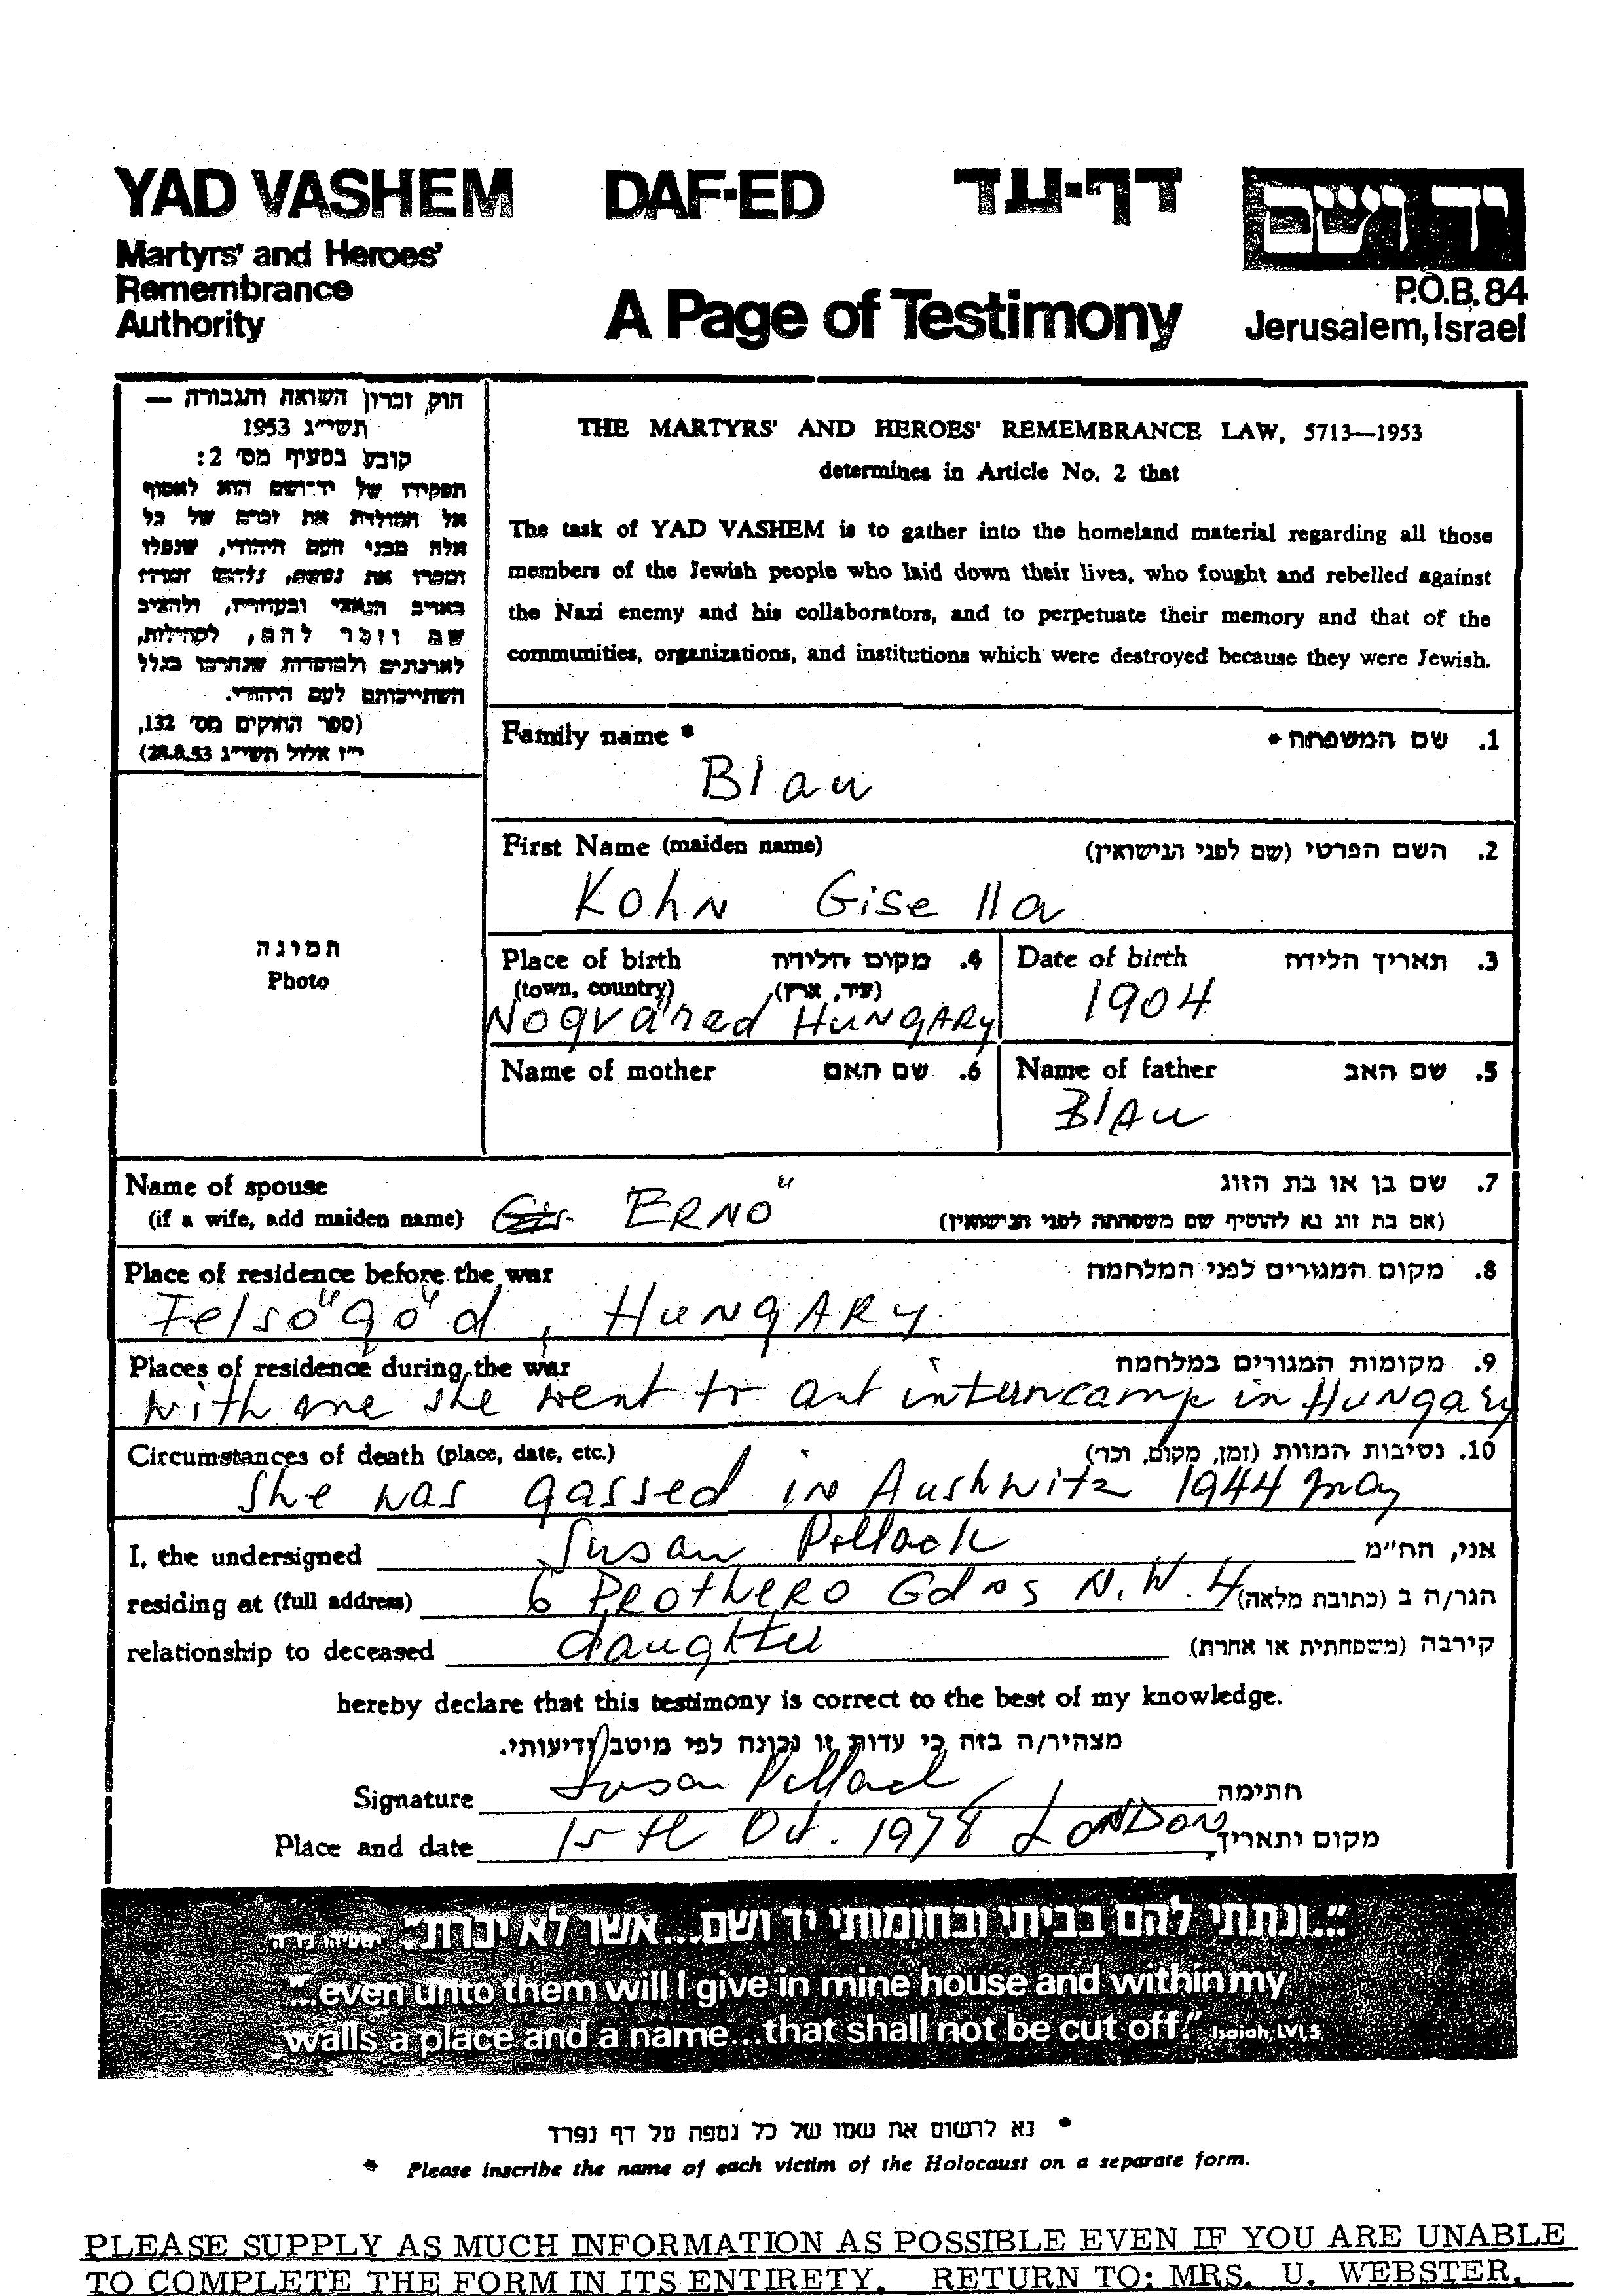 YAD VASHEM DAF-ED דף-עד יד ושם
Martyrs' and Heroes'
Remembrance
Authority
A Page of Testimony
P.O.B. 84
Jerusalem, Israel
חוק זכרון השואה והגבורה —
תשי"ג 1953
קובע בסעיף מס' 2:
תפקידו של יד-ושם הוא לאסוף
אל המולדת את זכרם של כל
אלה מבני העם היהודי, שנפלו
ומסרו את נפשם, נלחמו ומרדו
באויב הנאצי ובעוזריו, ולהציב
שם וזכר להם, לקהילות,
לארגונים ולמוסדות שנחרבו בגלל
השתייכותם לעם היהודי.
(ספר החוקים מס' 132,
י"ז אלול תשי"ג 28.8.53)
THE MARTYRS' AND HEROES' REMEMBRANCE LAW, 5713—1953
determines in Article No. 2 that
The task of YAD VASHEM is to gather into the homeland material regarding all those
members of the Jewish people who laid down their lives, who fought and rebelled against
the Nazi enemy and his collaborators, and to perpetuate their memory and that of the
communities, organizations, and institutions which were destroyed because they were Jewish.
Family name * 1. שם המשפחה *
Blau
First Name (maiden name) 2. השם הפרטי (שם לפני הנישואין)
Kohn Gisella
תמונה
Photo
Place of birth 4. מקום הלידה
(town, country) (עיר, ארץ)
Nogvárad HUNGARY
Date of birth 3. תאריך הלידה
1904
Name of mother 6. שם האם
Name of father 5. שם האב
Blau
Name of spouse 7. שם בן או בת הזוג
(if a wife, add maiden name) ERNŐ (אם בת זוג נא להוסיף שם משפחתה לפני הנישואין)
Place of residence before the war 8. מקום המגורים לפני המלחמה
Felsőgőd, HUNGARY
Places of residence during the war 9. מקומות המגורים במלחמה
with me she went to ant interncamp in Hungary
Circumstances of death (place, date, etc.) 10. נסיבות המוות (זמן, מקום, וכו')
She was gassed in Aushwitz 1944 may
I, the undersigned Susan Pollack אני, הח"מ
residing at (full address) 6 Prothero Gdns N.W.4 הגר/ה ב (כתובת מלאה)
relationship to deceased daughter קירבה (משפחתית או אחרת)
hereby declare that this testimony is correct to the best of my knowledge.
מצהיר/ה בזה כי עדות זו נכונה לפי מיטב ידיעותי.
Signature Susan Pollack חתימה
Place and date 15th Oct. 1978 LONDON מקום ותאריך
"...ונתתי להם בביתי ובחומותי יד ושם...אשר לא יכרת." ישעיהו נו ה
"...even unto them will I give in mine house and within my
walls a place and a name...that shall not be cut off." Isaiah, LVI,5
* נא לרשום את שמו של כל נספה על דף נפרד
* Please inscribe the name of each victim of the Holocaust on a separate form.
PLEASE SUPPLY AS MUCH INFORMATION AS POSSIBLE EVEN IF YOU ARE UNABLE
TO COMPLETE THE FORM IN ITS ENTIRETY. RETURN TO: MRS. U. WEBSTER,